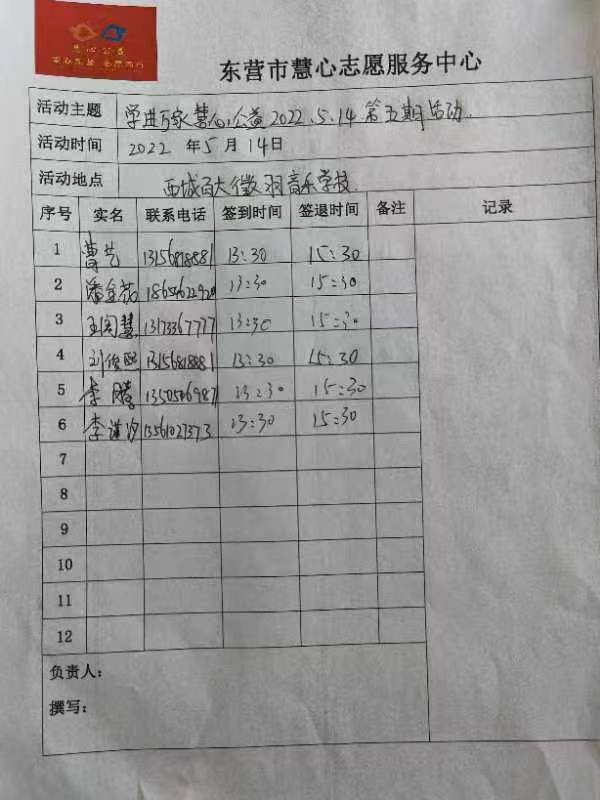 慧心公益
东营市慧心志愿服务中心
活动主题 学进万家 慧心公益 2022.5.14 第五期活动
活动时间 2022 年 5 月 14 日
活动地点 西城百大徵羽音乐学校
序号 实名 联系电话 签到时间 签退时间 备注 记录
1 曹艺 13156818881 13:30 15:30
2 潘金花 13:30 15:30
3 王闰慧 13173367777 13:30 15:30
4 刘俊熙 13156818881 13:30 15:30
5 李腾 13:30 15:30
6 李谨汐 13561027373 13:30 15:30
7
8
9
10
11
12
负责人：
撰写：